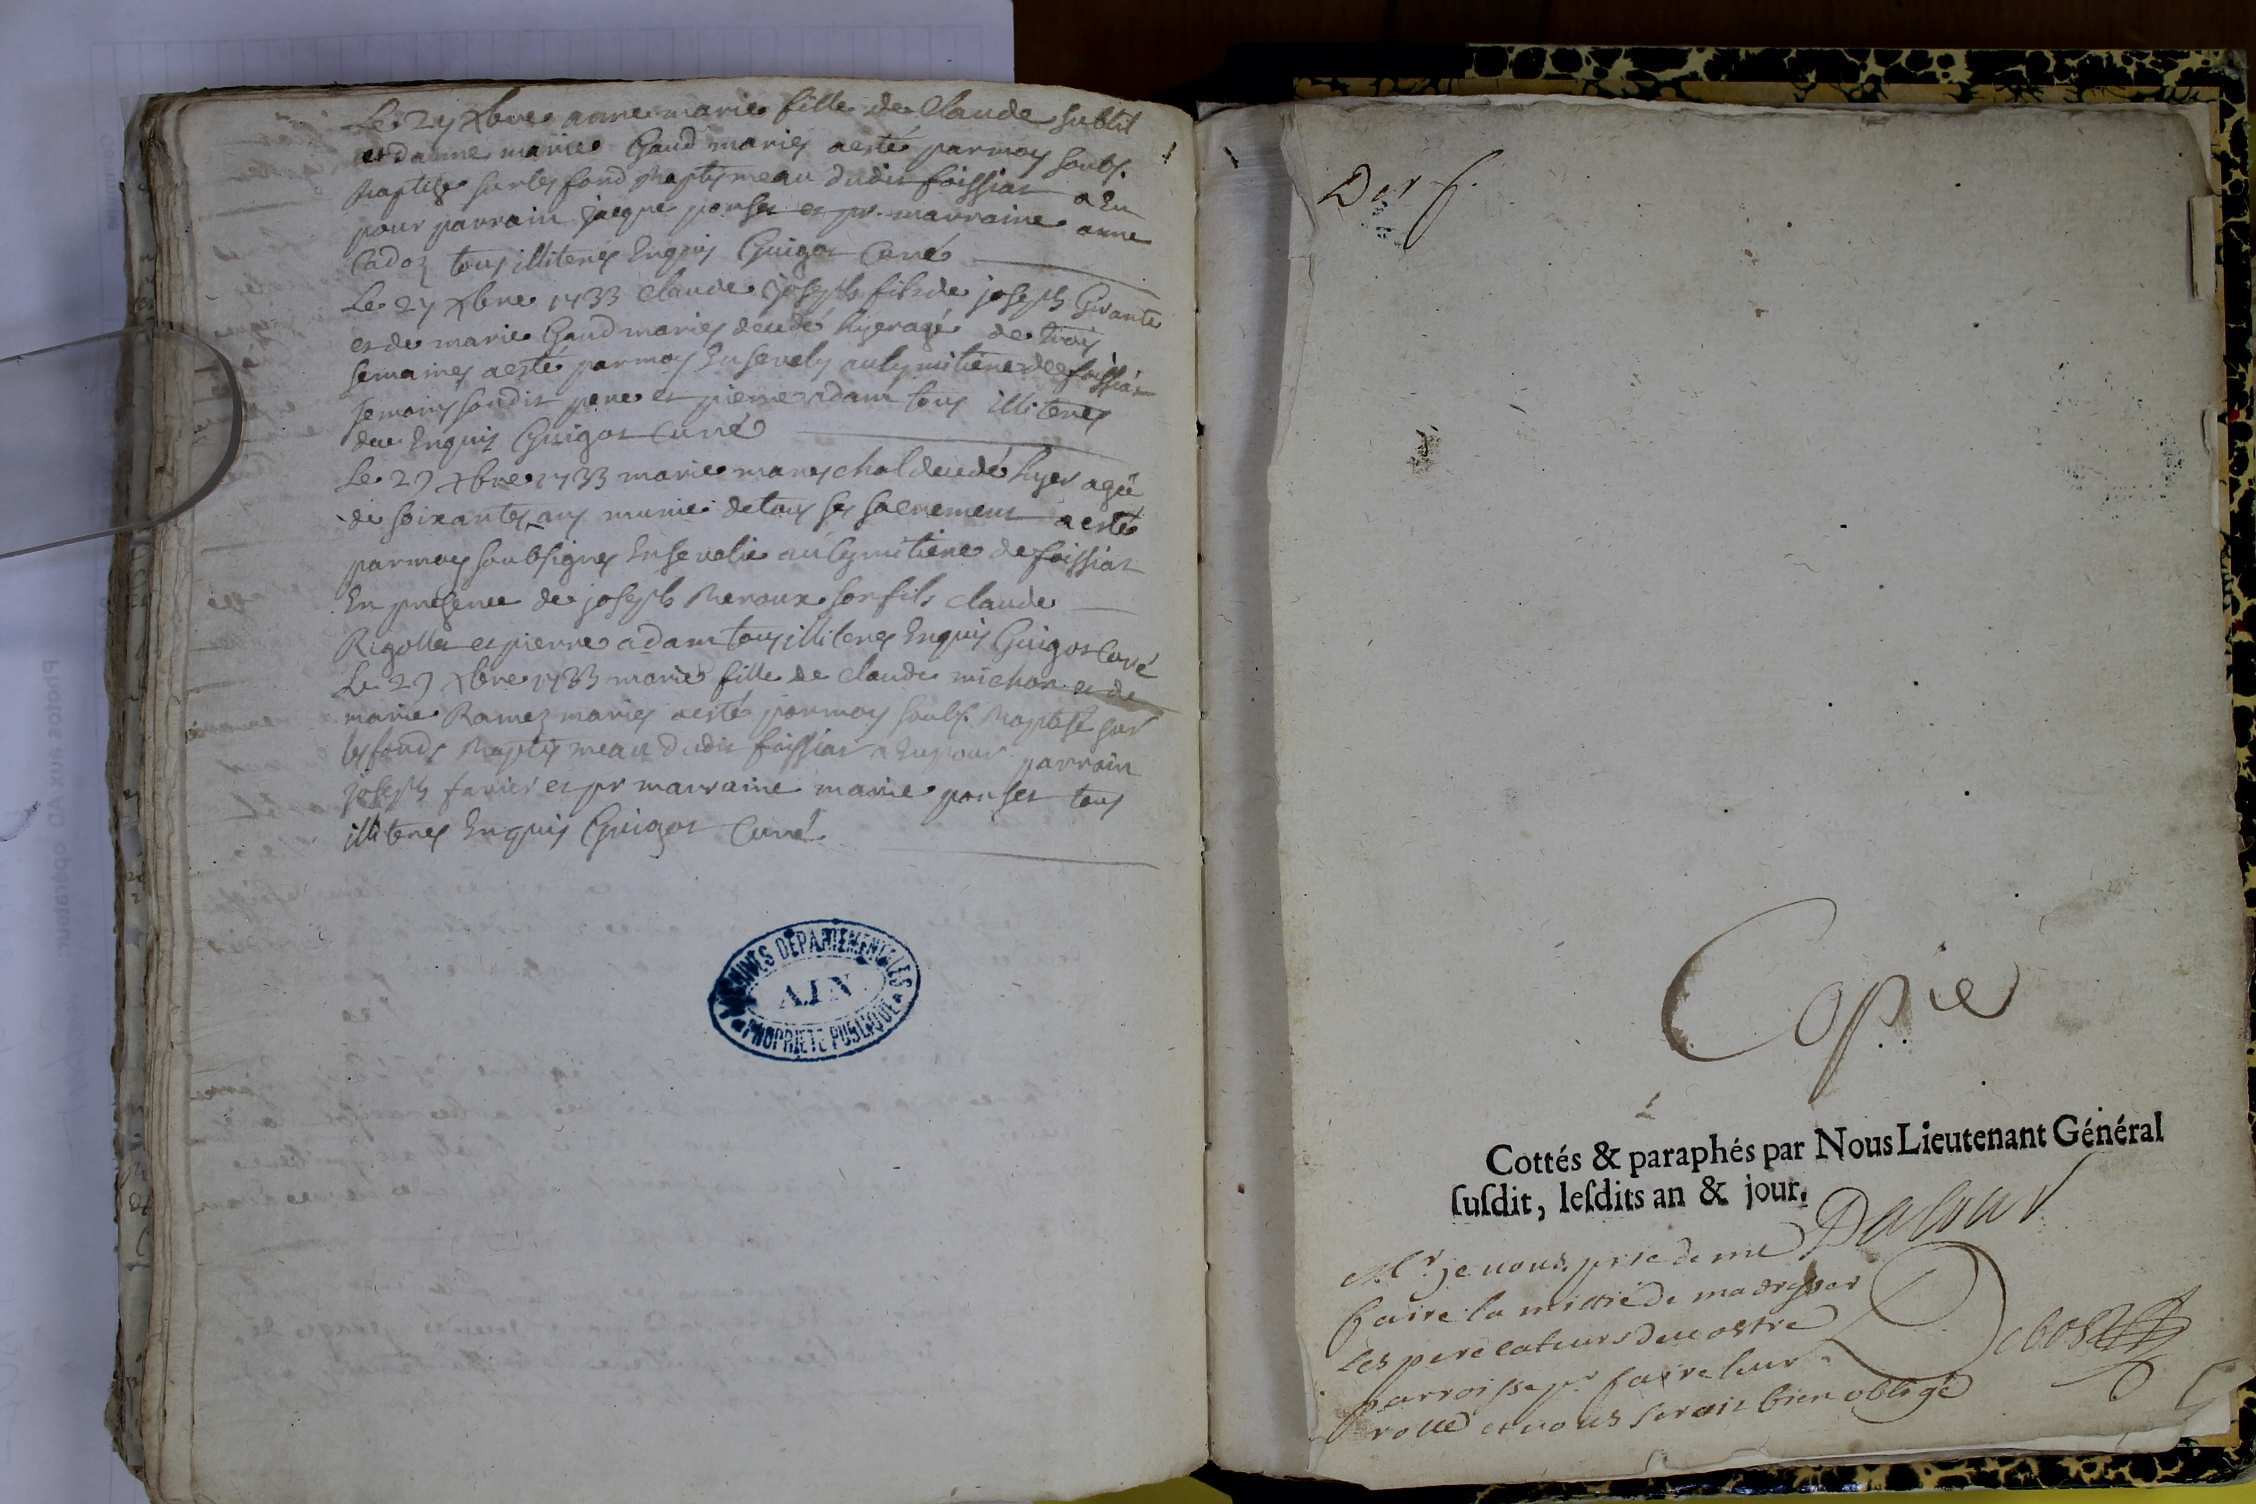 Le 27 Xbre anne marie fille de Claude subtil
et danne marie Gaud mariés a esté par moy soubs.
Baptisé sur les fond Baptismeau dudit foissiat a eu
pour parrain jacque ponset et pr. marraine anne
Cadoz tous illiterés Enquis Guigot Curé
Le 27 Xbre 1733 claude joseph fils de joseph
et de marie Gaud mariés decedé hyer agé de trois
semaines a esté par moy Ensevely au cymitiere de foissiat
temoins sondit pere et pierre adam tous illiterés
due Enquis Guigot Curé
Le 29 Xbre 1733 marie mareschal decedé hyer agé
de soixantes ans munie de tous ses sacrement a esté
par moy soubsignés Ensevelie au cymitiere de foissiat
En presence de joseph Reroux son fils claude
Rigollet et pierre adam tous illiterés Enquis Guigot Curé
Le 29 Xbre 1733 marie fille de claude michon et de
marie Ramez mariés a esté par moy soubs. Baptisé sur
les fonds Baptismeau dudit foissiat a eu pour parrain
joseph favier et pr marraine marie ponset tous
illiterés Enquis Guigot Curé
ARCHIVES DÉPARTEMENTALES
AIN
PROPRIÉTÉ PUBLIQUE
Der f.
Copie
Cottés & paraphés par Nous Lieutenant Général
ſuſdit, leſdits an & jour.
Mr. je vous prie de me
faire la mitié de madresser
Les pere cateurs de vostre
parroisse pr faire leur
rolle et vous serait bien obligé
Debost
Photos aux AD opérateur: